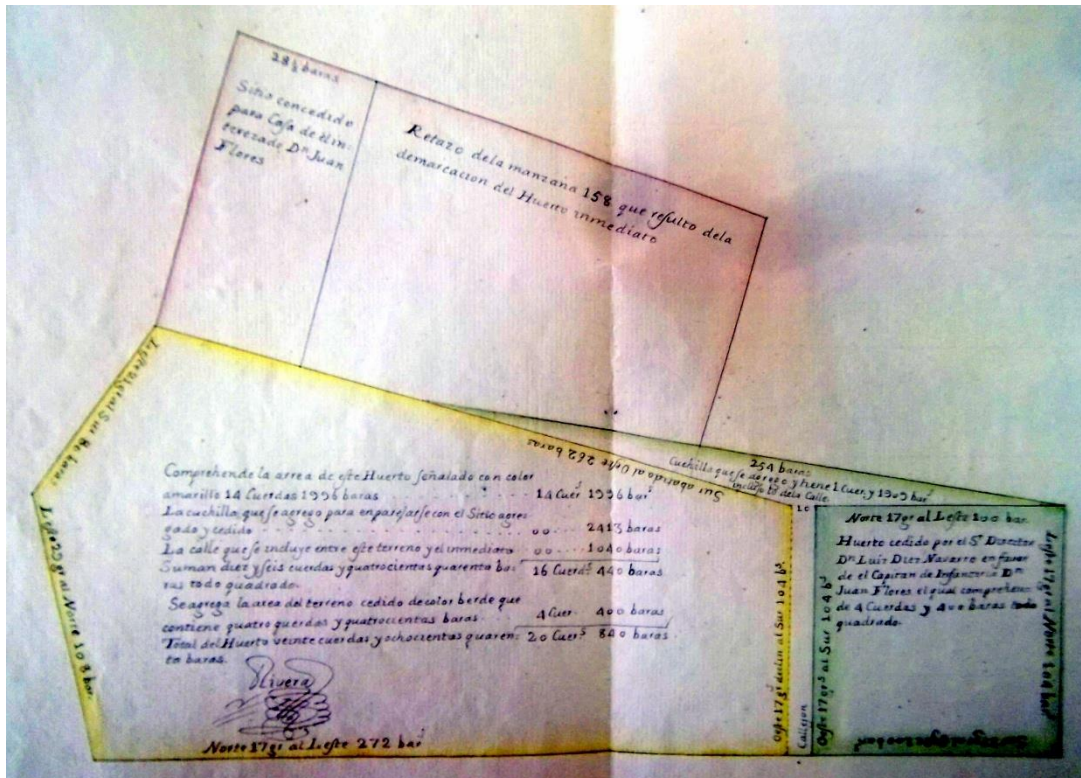 28½ baras
Sitio concedido
para Casa de
Dn Juan
Flores
Retazo dela manzana 158 que resulto dela
demarcacion del Huerto inmediato
Leste 21 gr al Sur 80 baras
Leste 29 gr al Norte 108 bar
Sur abatido al Oeste 262 baras
254 baras
Cuchilla que se y tiene 1 Cuer y 1909 bars
incluso lo dela Calle.
10
Comprehende la arrea de este Huerto señalado con color
amarillo 14 Cuerdas 1996 baras . . . . . . . 14 Cuers 1996 bars
La cuchilla que se agrego para emparejarse con el Sitio agre-
gado y cedido . . . . . . . 00 . . . . 2413 baras
La calle que se incluye entre este terreno y el inmediato . . 00 . . . . 1040 baras
Suman diez y seis cuerdas y quatrocientas quarenta ba- 16 Cuerds 440 baras
ras todo quadrado.
Se agrega la area del terreno cedido de color berde que
contiene quatro querdas y quatrocientas baras . . . 4 Cuer. 400 baras
Total del Huerto veinte cuerdas y ochocientas quaren- 20 Cuers 840 baras
ta baras.
Rivera
Norte 17 gr al Leste 272 bars
Oeste 17 gs declin al Sur 104 bs
Callejon
Oeste 17 grs al Sur 104 bs
Norte 17 gr al Leste 100 bar.
Huerto cedido por el Sr Director
Dn Luis Diez Navarro en favor
de el Capitan de Infanteria Dn
Juan Flores el qual comprehen-
de 4 Cuerdas y 400 baras todo
quadrado.
Leste 17 gr al Norte 104 bars
Sur 17 gr al Oeste 100 bars